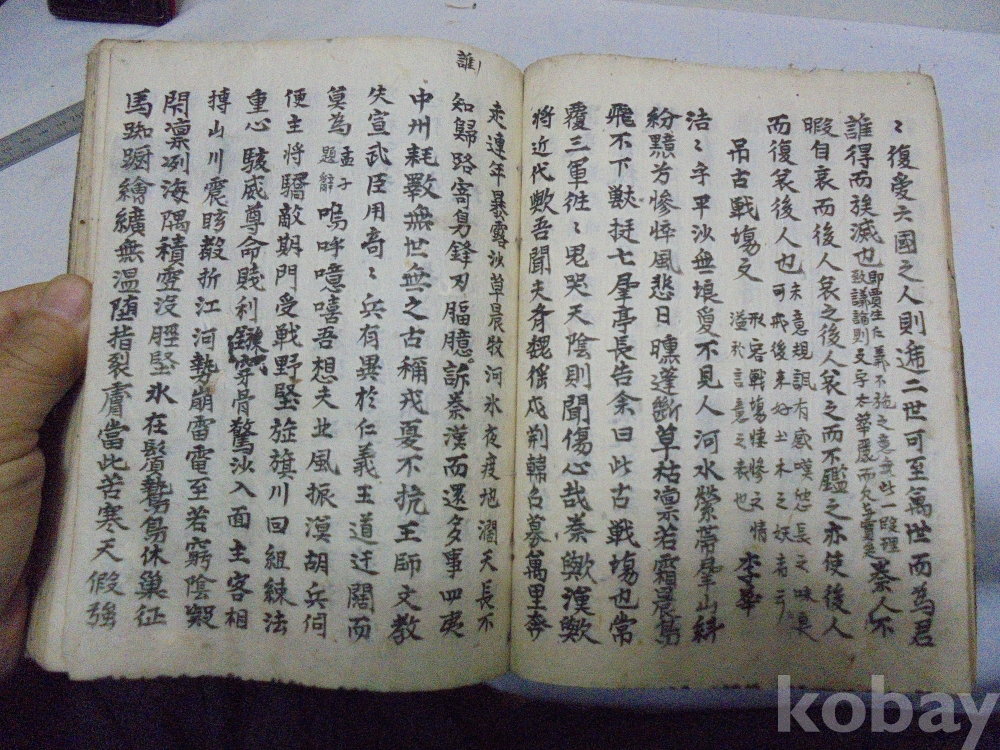 〻復愛六國之人則遞二世可至萬世而為君
誰得而族滅也 秦人不
暇自哀而後人哀之後人哀之而不鑑之亦使後人
而復哀後人也
吊古戰場文 李華
浩〻乎平沙無垠夐不見人河水縈帶羣山糾
紛黯芳慘悴風悲日曛蓬斷草枯凛若霜晨鳥
飛不下獸挺亡羣亭長告余曰此古戰場也常
覆三軍往〻鬼哭天陰則聞傷心哉秦歟漢歟
將近代歟吾聞夫齊魏徭戍荊韓召募萬里奔
走連年暴露沙草晨牧河氷夜渡地濶天長不
知歸路寄身鋒刃腷臆訴誰秦漢而還多事四夷
中州耗斁無世無之古稱戎夏不抗王師文教
失宣武臣用奇〻兵有異於仁義王道迂闊而
莫為嗚呼噫嘻吾想夫北風振漠胡兵伺
便主將驕敵期門受戰野竪旌旗川回組練法
重心駭威尊命賤利鏃穿骨驚沙入面主客相
搏山川震眩聲折江河勢崩雷電至若窮陰凝
閉凛冽海隅積雪沒脛堅氷在鬚鷙鳥休巢征
馬踟躕繒纊無溫墮指裂膚當此苦寒天假強
kobay